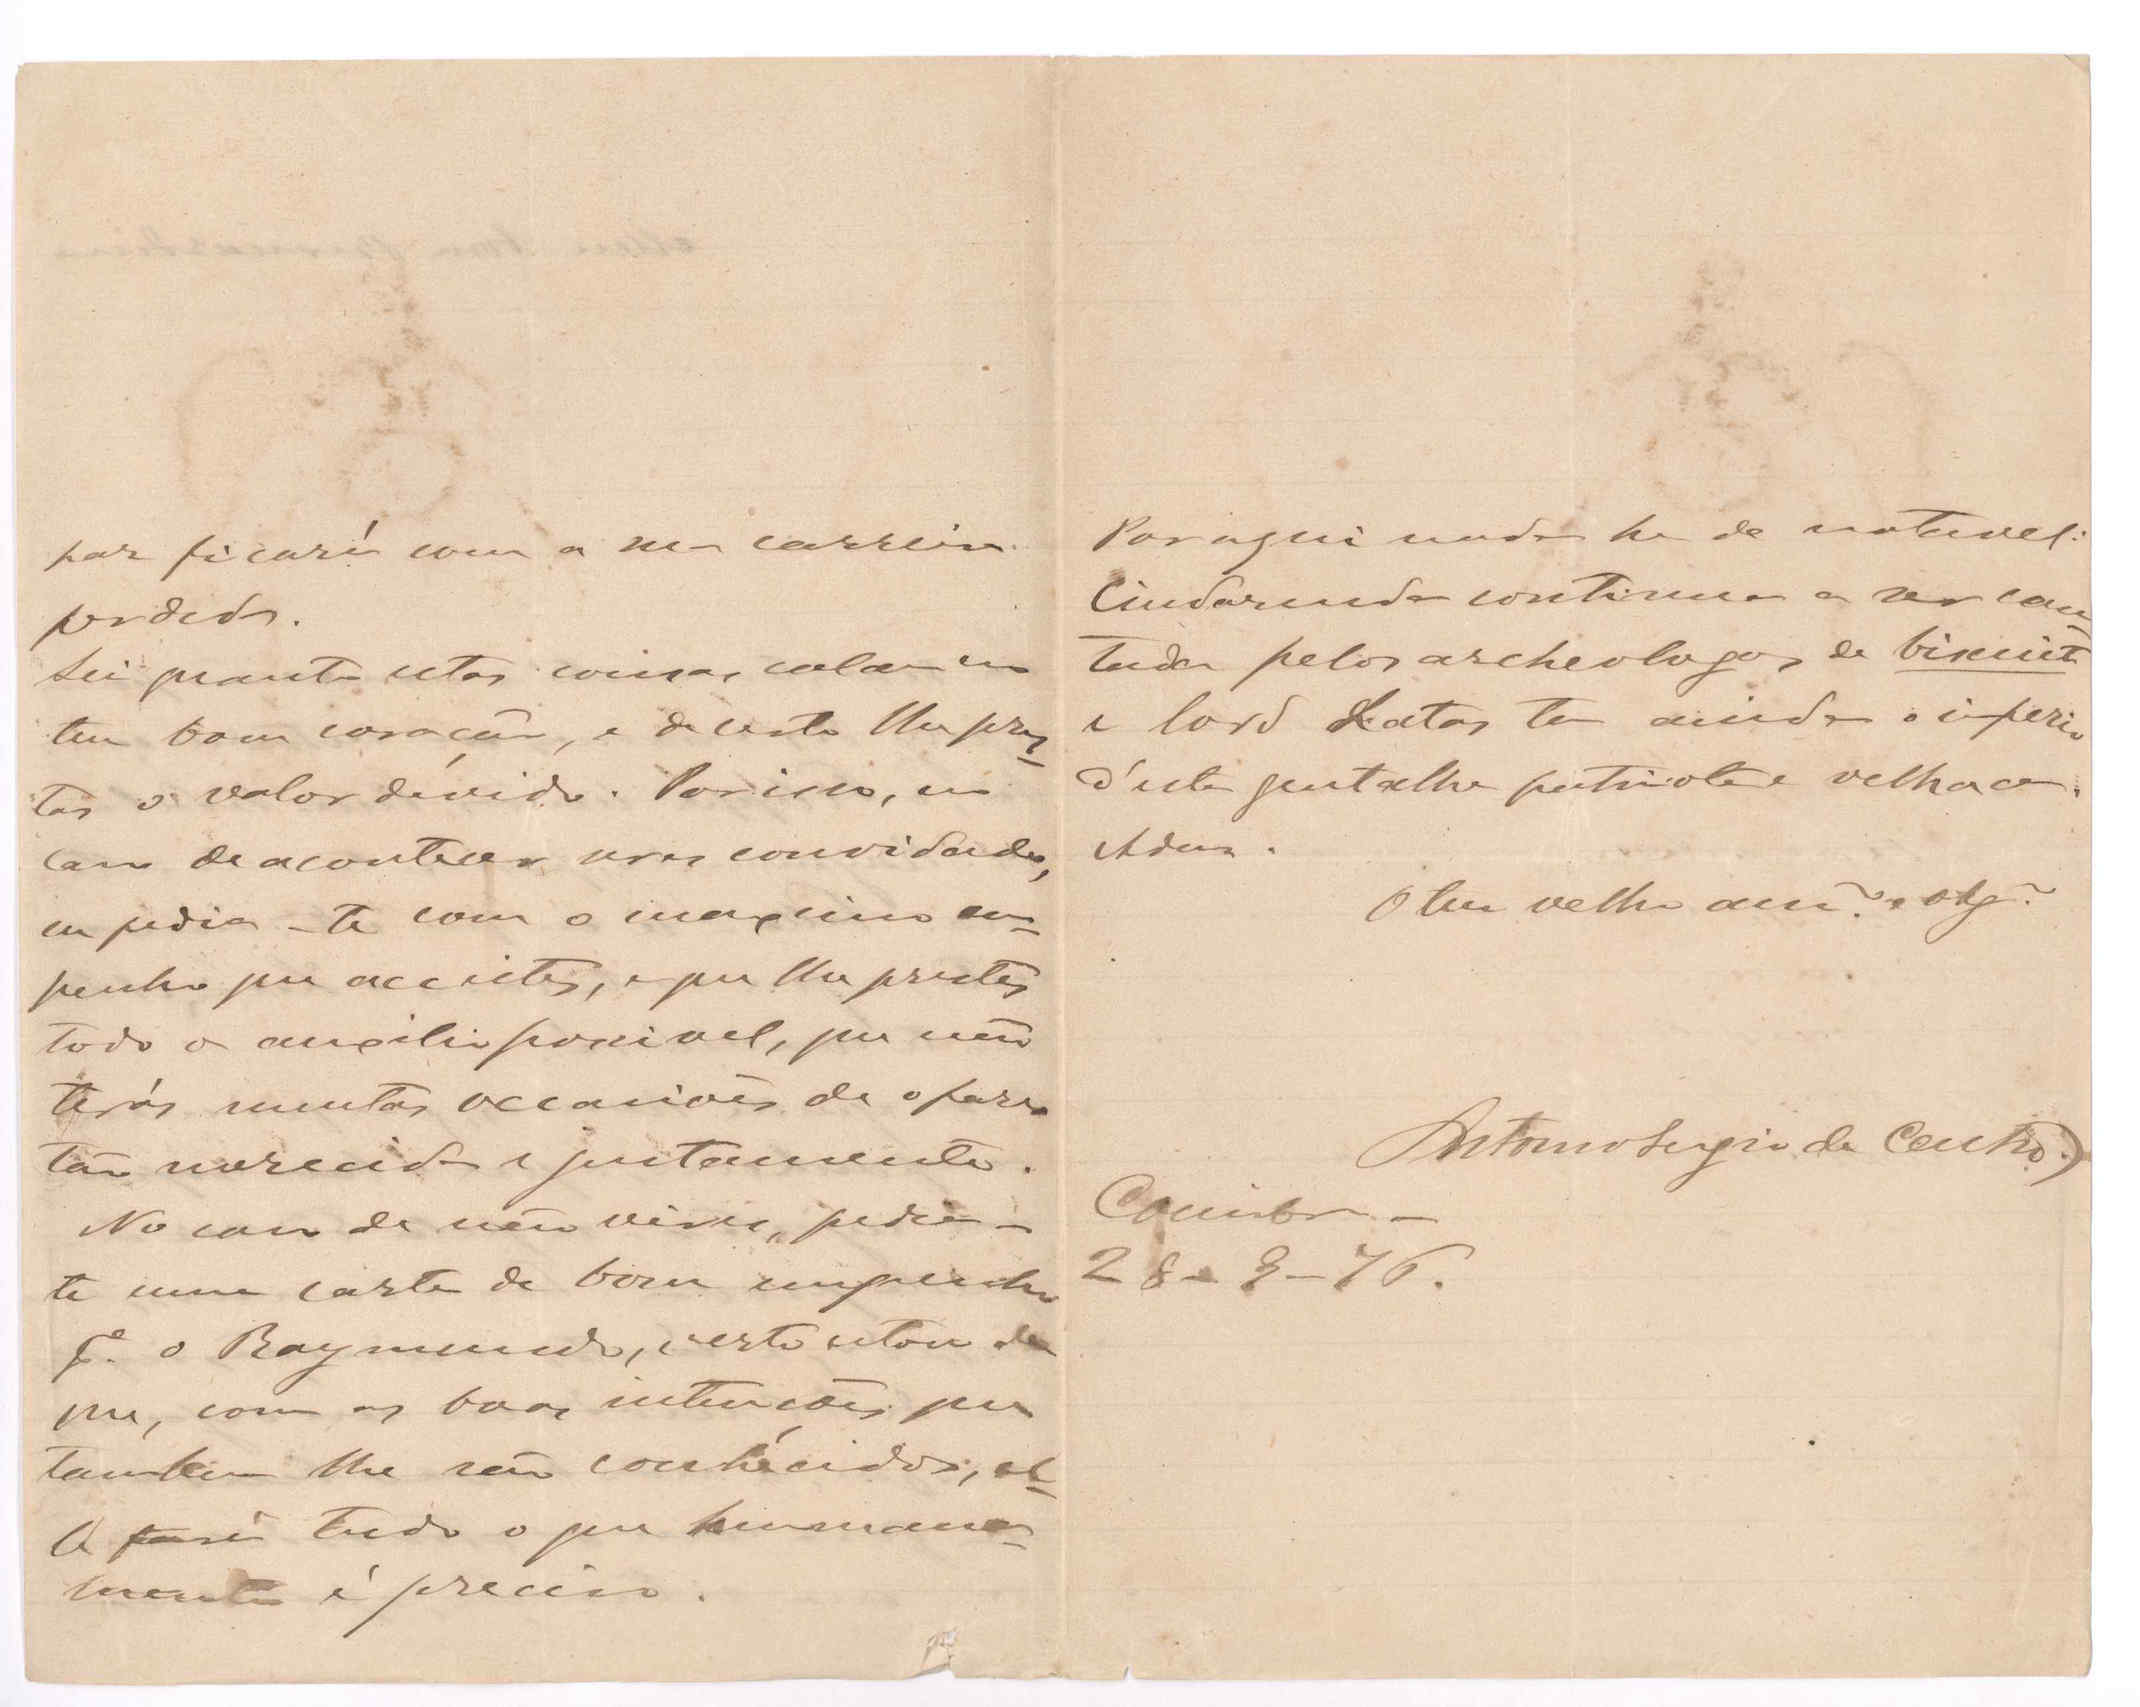 paz ficará com a sua carreira
perdida.
Sei quanto estas coisas calam no
teu bom coração, e de certo lhe pres-
tas o valor devido. Por isso, no
caso de aconteceres convidado,
eu pedia-te com o maximo em-
penho que acceites, e que lhe prestes
todo o auxilio possivel, que não
terás muitas occasiões de o fazer
tão merecida e justamente.
No caso de não vires, pedia-
te uma carta de bom empenho
pª. o Raymundo, certo estou de
que, com as boas intenções que
tambem lhe são conhecidas, el-
le fará tudo o que humana-
mente é preciso.
Por aqui nada ha de notavel:
Cindazunda continua a ser can-
tada pelos archeologos de biscuit
e lord Latas tem ainda o imperio
d'esta gentalha patriota e velhaca.
Adeus.
O teu velho amº. e obgº.
Antonio Sergio de Castro
Coimbra -
28-3-76.